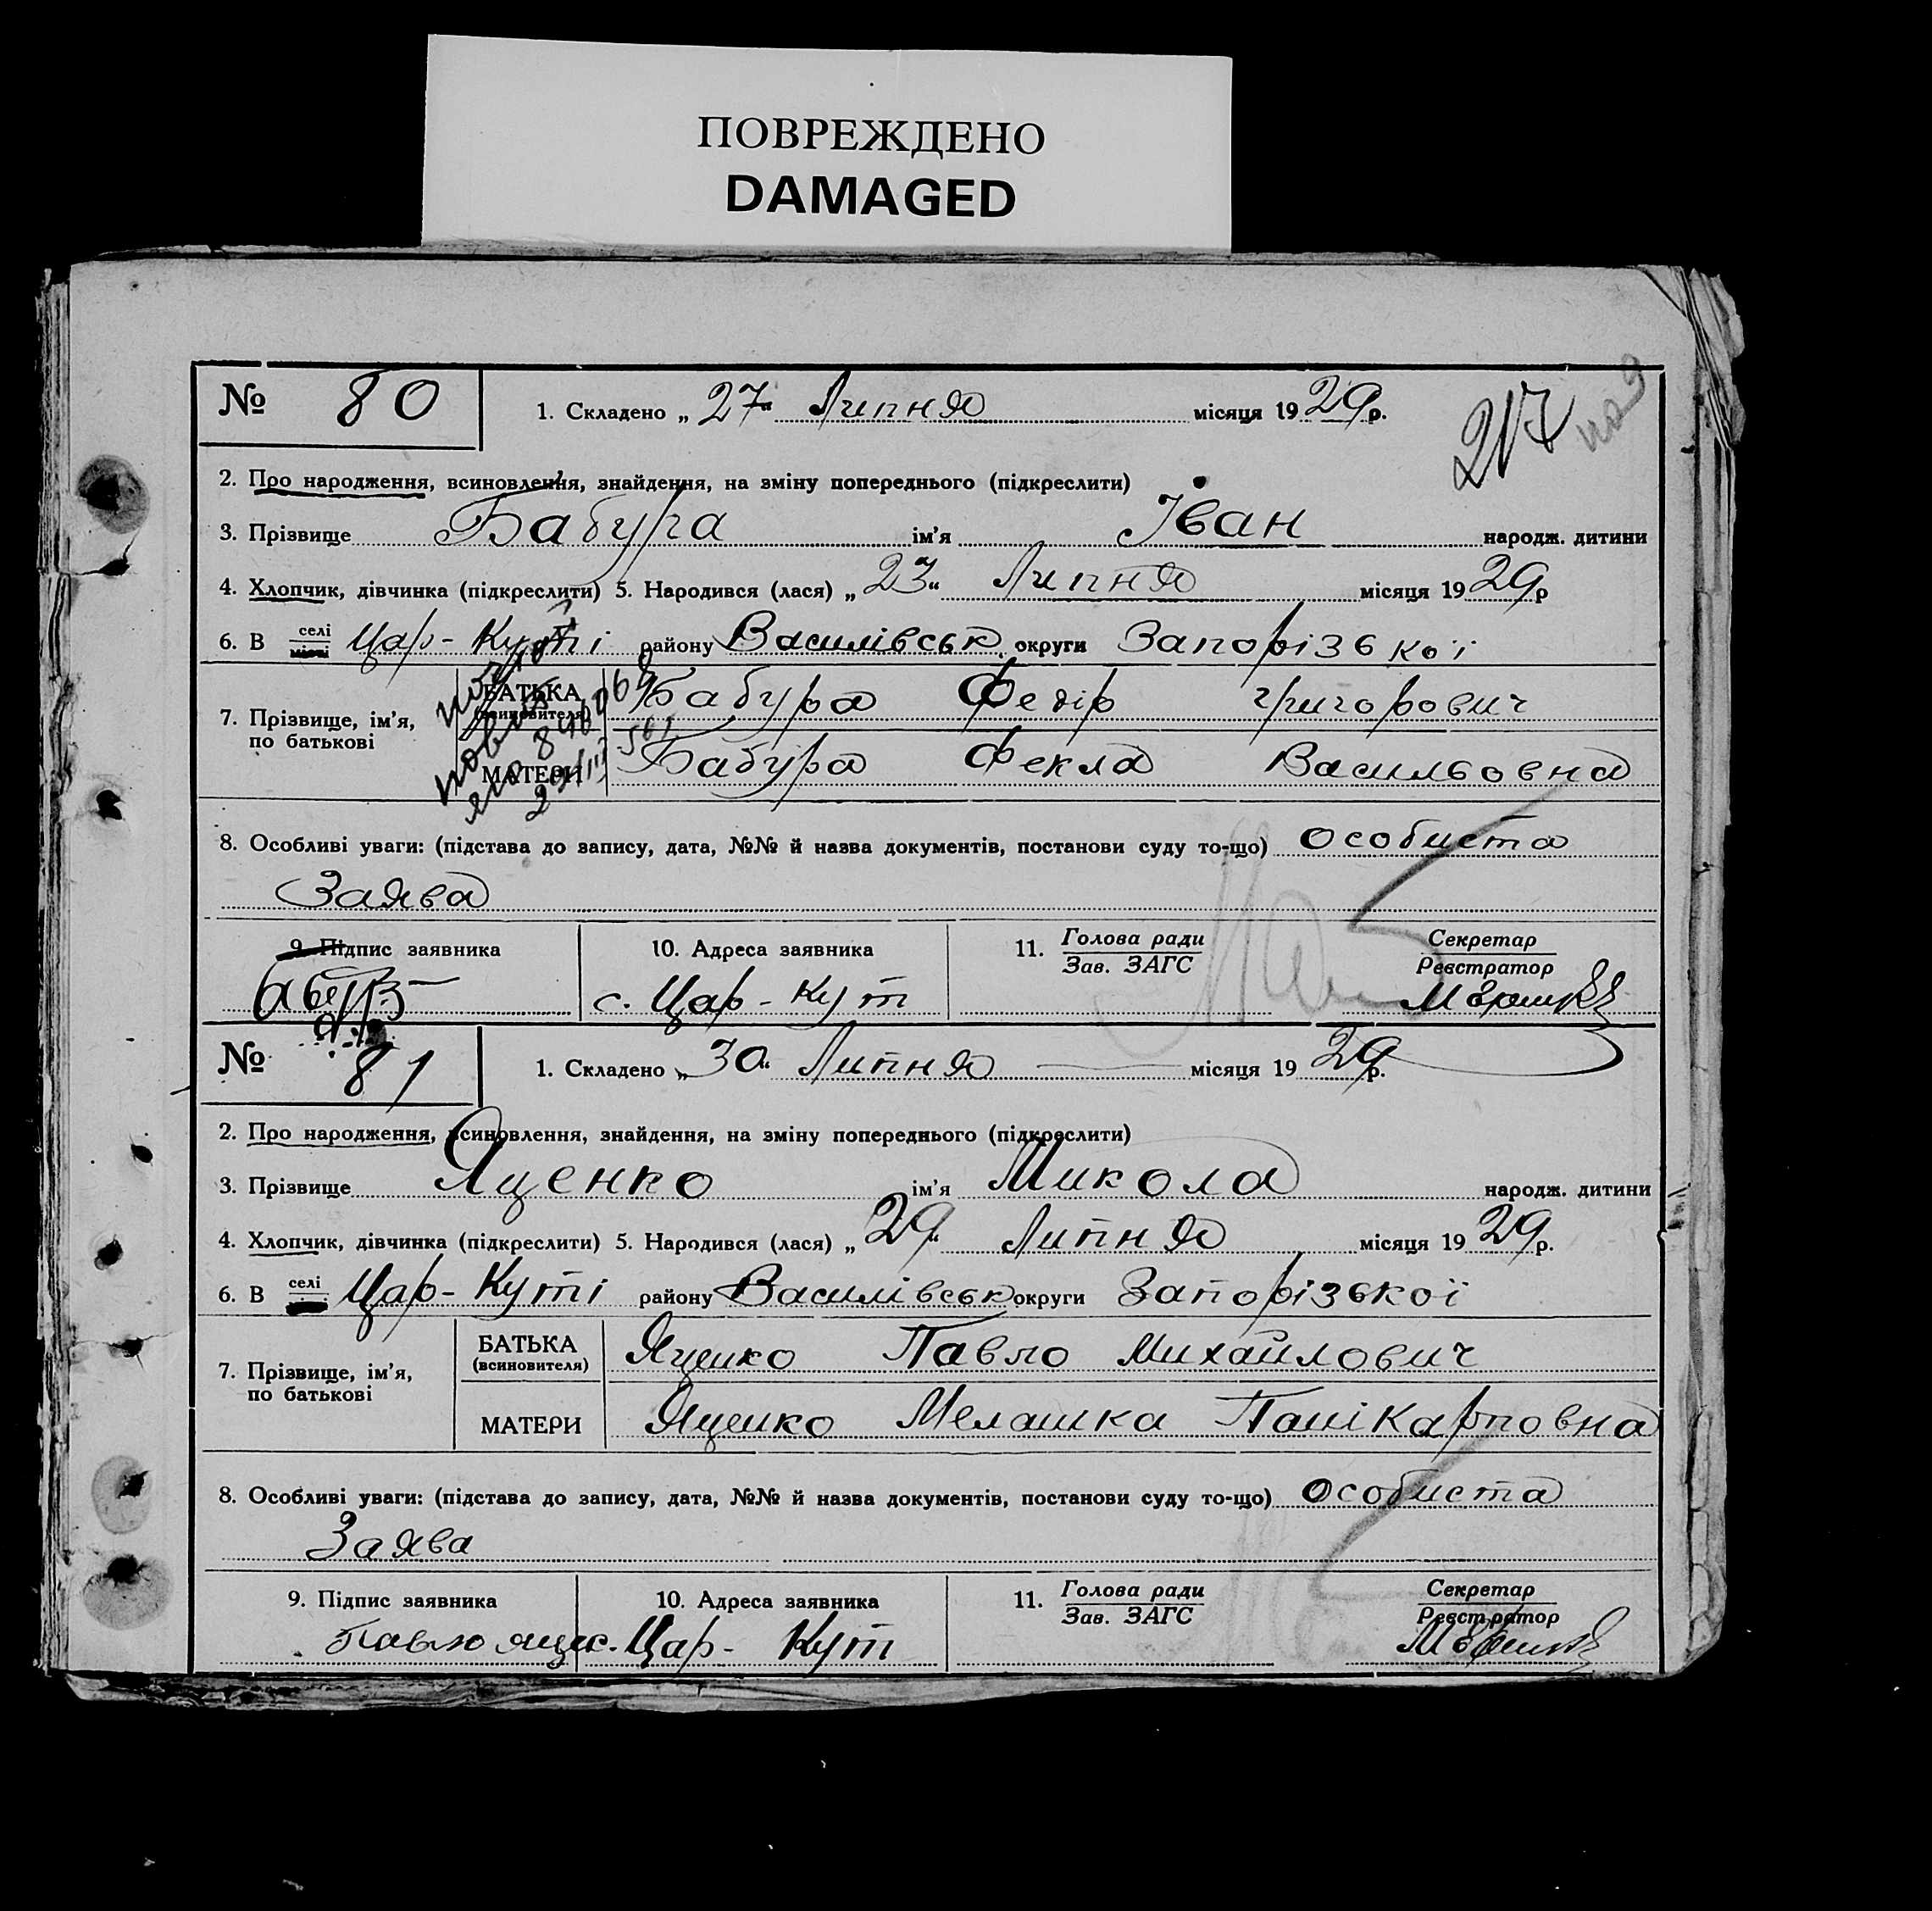 ПОВРЕЖДЕНО
DAMAGED
№ 80 1. Складено „ 27 “ Липня місяця 19 29 р. 217
2. Про народження, всиновлення, знайдення, на зміну попереднього (підкреслити)
3. Прізвище Бабура ім’я Іван народж. дитини
4. Хлопчик, дівчинка (підкреслити) 5. Народився (лася) „ 23 “ Липня місяця 19 29 р
6. В селі місті Цар-Куті району Василівськ. округи Запорізької
7. Прізвище, ім’я, по батькові
БАТЬКА (всиновителя) Бабура Федір Григорович
МАТЕРИ Бабура Фекла Васильовна
8. Особливі уваги: (підстава до запису, дата, №№ й назва документів, постанови суду то-що) Особиста
Заява
9. Підпис заявника 10. Адреса заявника 11. Голова ради Зав. ЗАГС Секретар Реєстратор
с. Цар-Кут
№ 81 1. Складено „ 30 “ Липня місяця 19 29 р.
2. Про народження, всиновлення, знайдення, на зміну попереднього (підкреслити)
3. Прізвище Яценко ім’я Микола народж. дитини
4. Хлопчик, дівчинка (підкреслити) 5. Народився (лася) „ 29 “ Липня місяця 19 29 р.
6. В селі Цар-Куті району Василівськ округи Запорізької
7. Прізвище, ім’я, по батькові
БАТЬКА (всиновителя) Яценко Павло Михайлович
МАТЕРИ Яценко Мелашка Панікарповна
8. Особливі уваги: (підстава до запису, дата, №№ й назва документів, постанови суду то-що) Особиста
Заява
9. Підпис заявника 10. Адреса заявника 11. Голова ради Зав. ЗАГС Секретар Реєстратор
Павло с. Цар-Кут